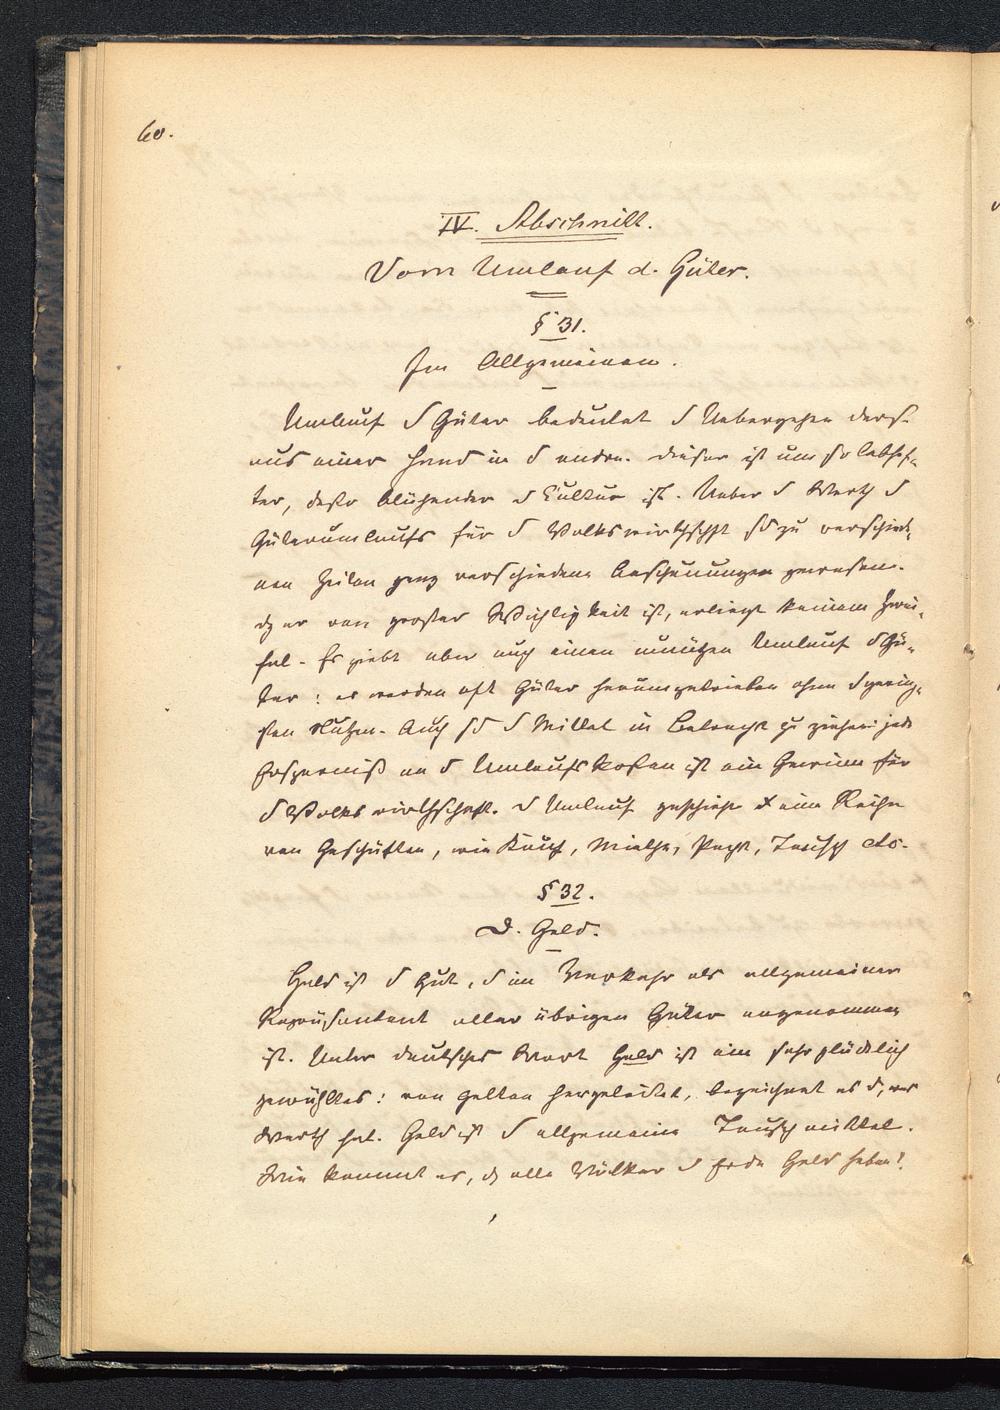 60.
IV. Abschnitt.
Vom Umlauf d. Güter.
§ 31.
Im Allgemeinen.
Umlauf d Güter bedeutet d Uebergehen ders.
aus einer Hand in d andre. Dieser ist um so lebhaf-
ter, desto blühender d Cultur ist. Ueber d Werth d
Güterumlaufs für d Volkswirthschft sd zu verschiede-
nen Zeiten ganz verschiedene Anschauungen gewesen.
dß er von großer Wichtigkeit ist, erliegt keinem Zwei-
fel. Es giebt aber auch einen unnützen Umlauf d Gü-
ter: es werden oft Güter herumgetrieben ohne d gering-
sten Nutzen. Auch sd d Mittel in Betracht zu ziehen: jede
Ersparniß an d Umlaufskosten ist ein Gewinn für
d Volkswirthschaft. d Umlauf geschieht d eine Reihe
von Geschäften, wie Kauf, Miethe, Pacht, Tausch etc.
§ 32.
D. Geld.
Geld ist d Gut, d im Verkehr als allgemeiner
Repräsentant aller übrigen Güter angenommen
ist. Unser deutsches Wort Geld ist ein sehr glücklich
gewähltes: von gelten hergeleitet, bezeichnet es d, was
Werth hat. Geld ist d allgemeine Tauschmittel.
Wie kommt es, dß alle Völker d Erde Geld haben?